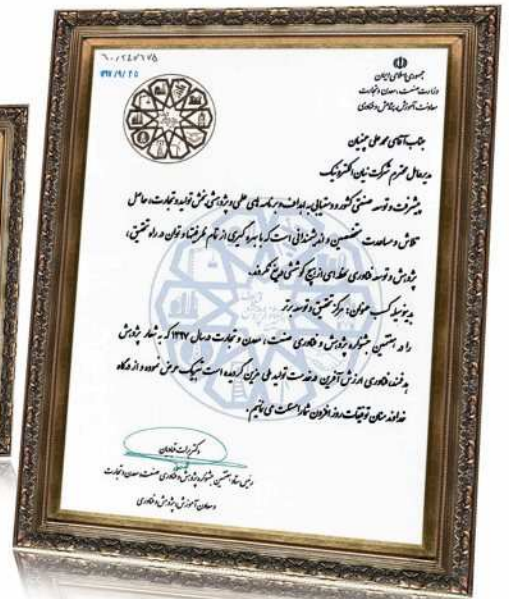 ۶۰/۲۴۷۶۷۵
۱۳۹۷/۹/۲۵
جمهوری اسلامی ایران
وزارت صنعت، معدن و تجارت
معاونت آموزش، پژوهش و فناوری
جناب آقای محمد علی چنیان
مدیرعامل محترم شرکت نیان الکترونیک
پیشرفت و توسعه صنعتی کشور و دستیابی به اهداف و برنامه های علمی و پژوهشی بخش تولید و تجارت، حاصل
تلاش و مساعدت متخصصین و اندیشمندانی است که با بهره گیری از تمام ظرفیتها و توان در راه تحقیق،
پژوهش و توسعه فناوری لحظه ای از هیچ کوششی دریغ نکردند.
بدینوسیله کسب عنوان: مرکز تحقیق و توسعه برتر
را در هفتمین جشنواره پژوهش و فناوری صنعت، معدن و تجارت در سال ۱۳۹۷ که به شعار پژوهش
هدفمند، فناوری ارزش آفرین در خدمت تولید ملی مزین گردیده است تبریک عرض نموده و از درگاه
خداوند منان توفیقات روز افزون شما را مسئلت می نمایم.
دکتر برات قبادیان
رئیس ستاد هفتمین جشنواره پژوهش و فناوری صنعت، معدن و تجارت
و معاون آموزش، پژوهش و فناوری